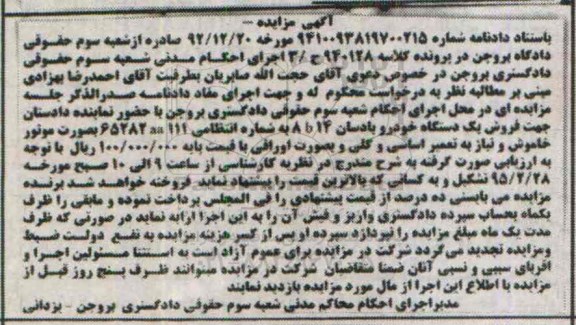 آگهی مزایده –
باستناد دادنامه شماره ۹۴۱۰۰۹۳۸۱۹۷۰۰۲۱۵ مورخه ۹۲/۱۲/۲۰ صادره ازشعبه سوم حقوقی
دادگاه بروجن در پرونده کلاسه ۹۴۰۱۲۸ ح /۳اجرای احکـام مـدنی شـعبه سـوم حقوقی
دادگستری بروجن در خصوص دعوی آقای حجت الله صابریان بطرفیت آقای احمدرضا بهزادی
مبنی بر مطالبه نظر به درخواست محکوم له و جهت اجرای مفاد دادنامـه صـدرالذکر جلـسه
مزایده ای در محل اجرای احکام شعبه سوم حقوقی دادگستری بروجن با حضور نماینده دادستان
جهت فروش یک دستگاه خودرو یادسان ۱۴ b ۸ به شماره انتظامی ۱۱۱ aa ۶۵۲۸۳ بصورت موتور
خاموش و نیاز به تعمیر اساسی و کلی و بصورت اوراقی با قیمت پایه ۱۰۰/۰۰۰/۰۰۰ ریال با توجه
به ارزیابی صورت گرفته به شرح مندرج در نظریه کارشناسی از ساعت ۹ الی ۱۰ صبح مورخـه
۹۵/۲/۲۸ تشکیل و به کسانی که بالاترین قیمت را پیشنهاد نماید فروخته خواهـد شـد برنـده
مزایده می بایستی ده درصد از قیمت پیشنهادی را فی المجلس پرداخت نموده و مابقی را ظرف
یکماه بحساب سپرده دادگستری واریز و فیش آن را به این اجرا ارایه نماید در صورتی که ظرف
مدت یک ماه مبلغ مزایده را نپردازد سپرده او پس از کسر هزینه مزایده به نفـع دولـت ضـبط
ومزایده تجدید می گردد شرکت در مزایده برای عموم آزاد است به اسـتثنا مـسئولین اجـرا و
اقربای سببی و نسبی آنان ضمنا متقاضیان شرکت در مزایده میتوانند ظـرف پـنج روز قبـل از
مزایده با اطلاع این اجرا از مال مورد مزایده بازدید نمایند
مدیراجرای احکام محاکم مدنی شعبه سوم حقوقی دادگستری بروجن - یزدانی